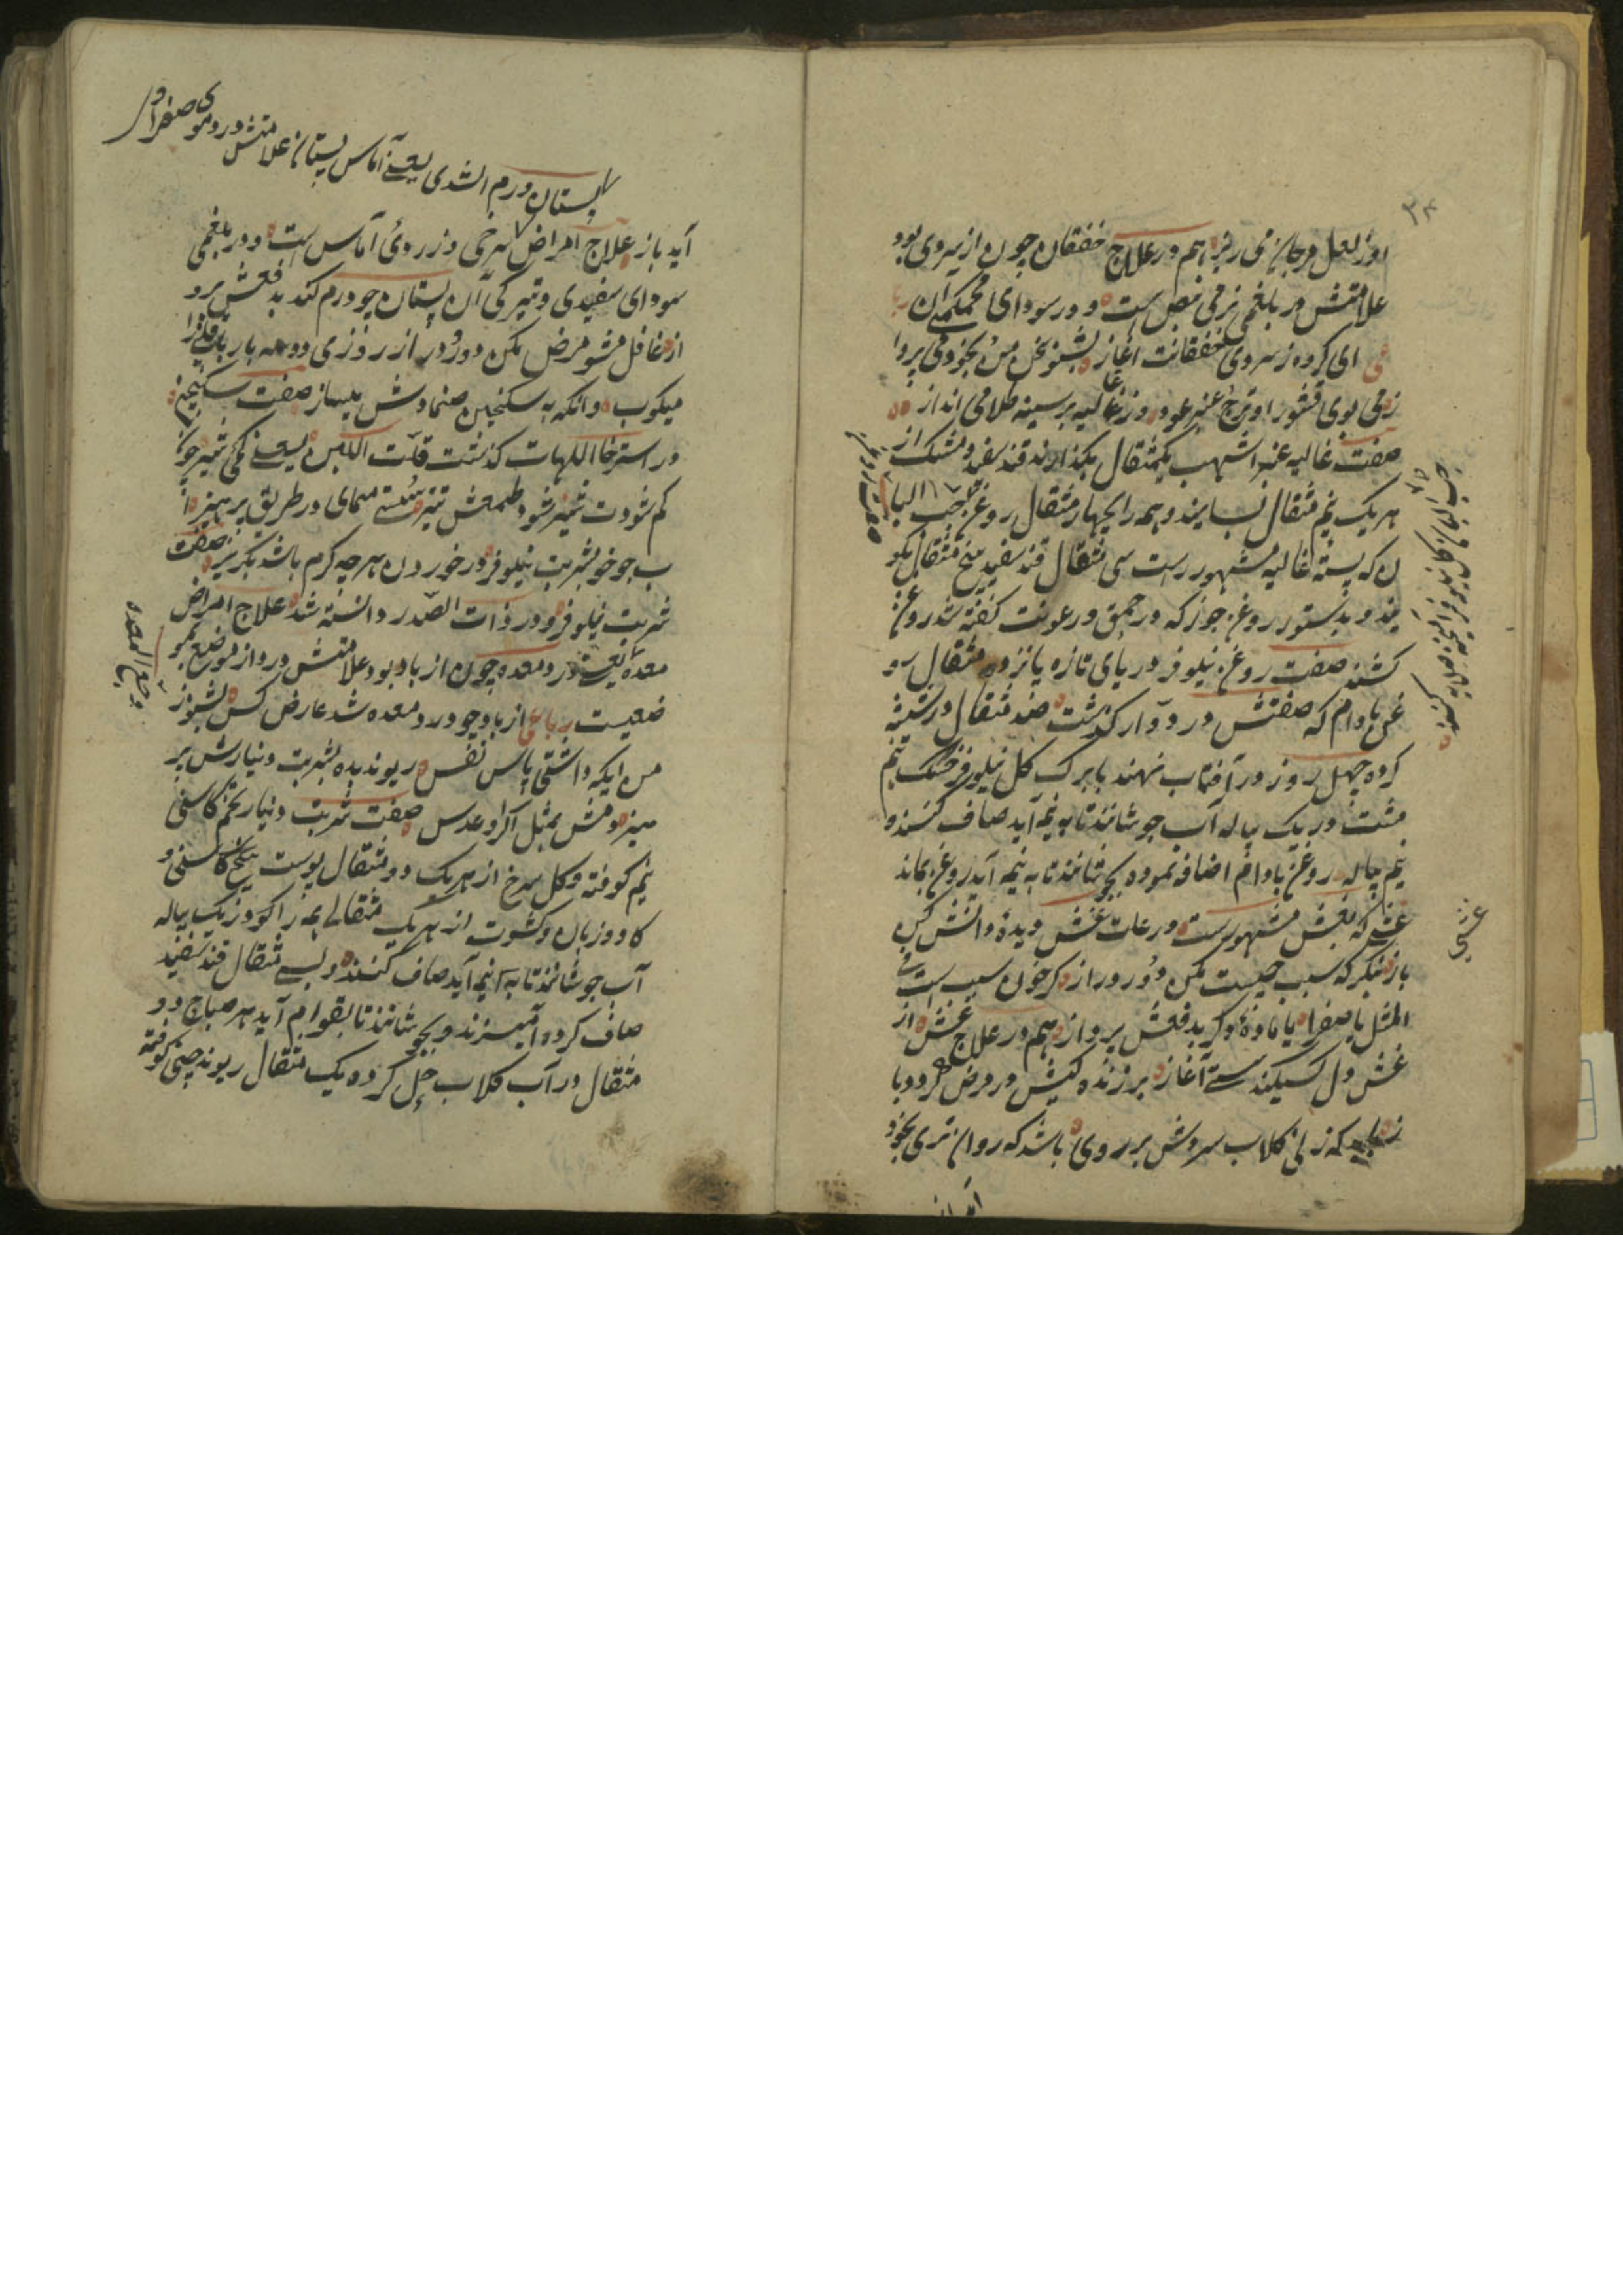 اوز لعل و مرجان می ریز هم در علاج خفقان چون از سردی بود
علامتش در بلغمی نرمی نبض ست و در سودای محکمی آن
ای کرده ز سردی خفقانت آغاز بشنو سخن من بخود می پرداز
می بوی قشور اترج عنبر عود وز غالیه بر سینه طلا می انداز
صفت غالیه عنبر اشهب یکمثقال بگذارند قند سفید و مشک از
هر یک نیم مثقال بسایند و همه را بچهار مثقال روغن حب البا
ن که پسته غالیه مشهور است سی مثقال قند سفید پنج مثقال بکو
بند و بدستور روغن جوز که در حمق و رعونت گفته شد روغن
کشند صفت روغن نیلوفر دریای تازه پانزده مثقال رو
غن بادام که صفتش در دوار گذشت صد مثقال در شیشه
کرده چهل روز در آفتاب نهند یا برک کل نیلوفر خشک نیم
مشت در یک پیاله آب جوشانند تا به نیمه آید صاف کنند و
نیم پیاله روغن بادام اضافه نموده بجوشانند تا به نیمه آید روغن بماند
غشی که بغش مشهورست در عات غش دیده دانش کن
باز بنکر که سبب چیست مکن دور و دراز کر خون سبب است
المثل یا صفرا یا ماده وکر بدفعش پرداز هم در علاج غش از
غش دل کسیکند سستی آغاز بر زنده کیش در مرض کردد با
ز باید که زنی کلاب سردش بر روی باشد که روان تری بخود
غشی
پستان ورم الثدی یعنی آماس پستان علامتش در دموی صفرا و
آید باز علاج امراض سرخی و زردی آماس ست و در بلغمی
سودای سفیدی و تیرکی آن پستان چو ورم کند بدفعش پرد
از غافل مشو مرض مکن دور و دراز روزی دو سه بار باقلی را
میکوب وانکه به سکنجبین ضمادش میساز صفت سکنجبین
در استرخا اللهات کذشت قلت اللبن یعنی کمی شیر چو
کم شودت شیر شود طمعش تیز سستی منمای در طریق پرهیز
ب جو خو بشربت نیلوفر در خوردن هر چه کرم باشد بکریز صفت
شربت نیلوفر در ذات الصدر دانسته شد علاج امراض
معده یعنی درد معده چون از باد بود علامتش درد از موضع بمو
ضعیست رباعی از باد چو درد معده شد عارض کس بشنو ز
من ایکه داشتی پاس نفس ریوند بده بشربت دینارش پر
هیز و منش بمثل آکر او عدس صفت شربت دینار تخم کاسنی
نیم کوفته و کل سرخ از هر یک دو مثقال پوست بیخ کاسنی و
کاو زبان و کشوت از هر یک مثقالی همه را در یک پیاله
آب جوشانند تا به نیمه آید صاف کنند و بسی مثقال قند سفید
صاف کرده آمیزند و بجوشانند تا بقوام آید هر صباح دو
مثقال در آب کلاب حل کرده یک مثقال ریوند چینی کوفته
وجع المعده